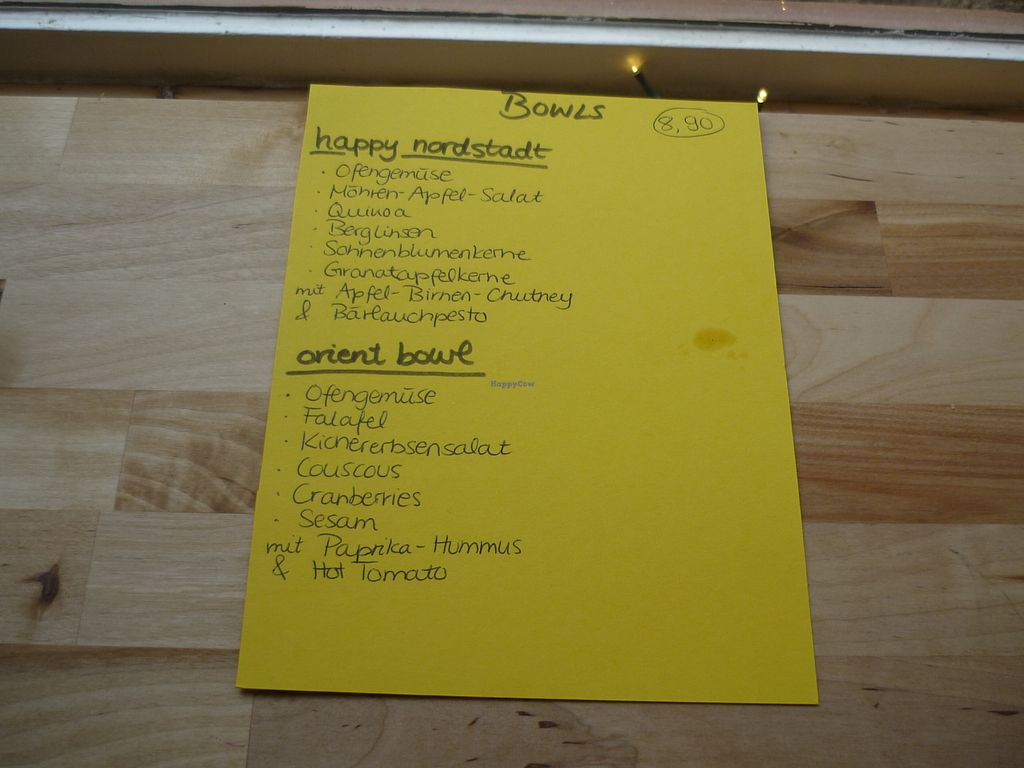 BOWLS
8,90
happy nordstadt
· Ofengemüse
· Möhren-Apfel-Salat
· Quinoa
· Berglinsen
· Sonnenblumenkerne
· Granatapfelkerne
mit Apfel-Birnen-Chutney
& Bärlauchpesto
orient bowl
· Ofengemüse
· Falafel
· Kichererbsensalat
· Couscous
· Cranberries
· Sesam
mit Paprika-Hummus
& Hot Tomato
HappyCow